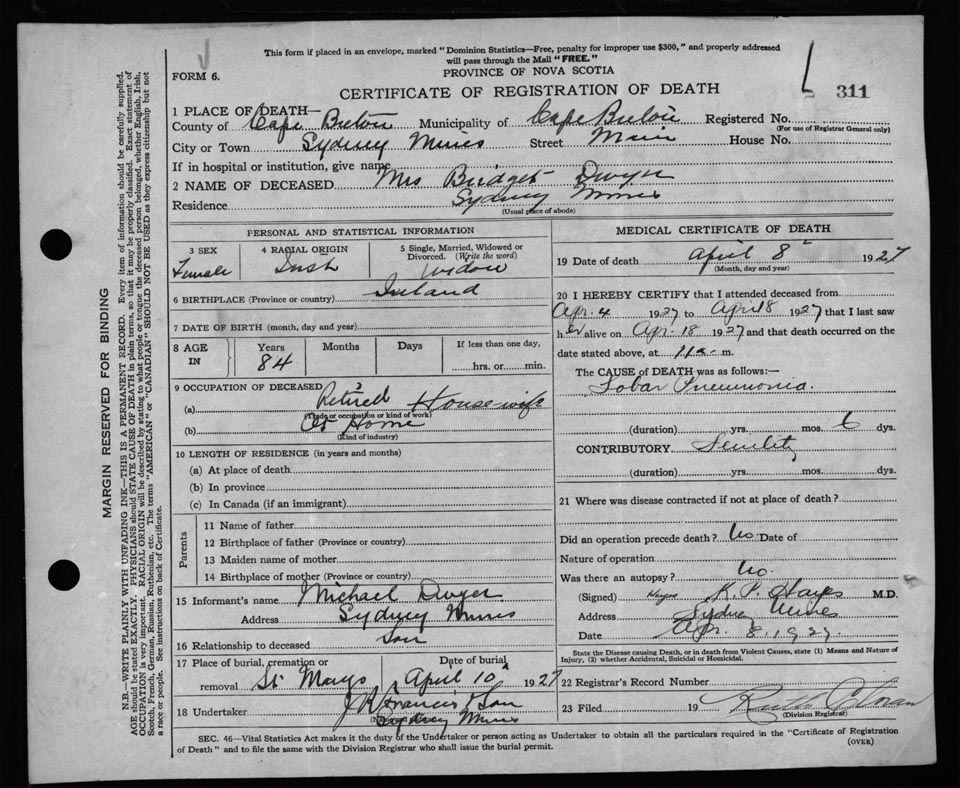 This form if placed in an envelope, marked "Dominion Statistics—Free, penalty for improper use $300," and properly addressed
will pass through the Mail "FREE."
FORM 6.
PROVINCE OF NOVA SCOTIA
CERTIFICATE OF REGISTRATION OF DEATH
311
1 PLACE OF DEATH—
County of Cape Breton Municipality of Cape Breton Registered No.
(For use of Registrar General only)
City or Town Sydney Mines Street Main House No.
If in hospital or institution, give name
2 NAME OF DECEASED Mrs Bridget Dwyer
Residence Sydney Mines
(Usual place of abode)
PERSONAL AND STATISTICAL INFORMATION
3 SEX
Female
4 RACIAL ORIGIN
Irish
5 Single, Married, Widowed or
Divorced. (Write the word)
Widow
6 BIRTHPLACE (Province or country) Ireland
7 DATE OF BIRTH (month, day and year)
8 AGE IN
Years
84
Months
Days
If less than one day,
hrs. or min.
9 OCCUPATION OF DECEASED
(a) Retired Housewife
(Trade or occupation or kind of work)
(b) At Home
(Kind of industry)
10 LENGTH OF RESIDENCE (in years and months)
(a) At place of death
(b) In province
(c) In Canada (if an immigrant)
Parents
11 Name of father
12 Birthplace of father (Province or country)
13 Maiden name of mother
14 Birthplace of mother (Province or country)
15 Informant's name Michael Dwyer
Address Sydney Mines
16 Relationship to deceased Son
17 Place of burial, cremation or
removal St Marys
Date of burial
April 10 1927
18 Undertaker J R Francis & Son
Sydney Mines
MEDICAL CERTIFICATE OF DEATH
19 Date of death April 8 1927
(Month, day and year)
20 I HEREBY CERTIFY that I attended deceased from
Apr. 4 1927 to April 8 1927 that I last saw
her alive on Apr. 18 1927 and that death occurred on the
date stated above, at m.
The CAUSE of DEATH was as follows:—
Lobar Pneumonia.
(duration) yrs. mos. 6 dys.
CONTRIBUTORY Senility
(duration) yrs. mos. dys.
21 Where was disease contracted if not at place of death?
Did an operation precede death? No Date of
Nature of operation
Was there an autopsy? No.
(Signed) Hayes K. P. Hayes M.D.
Address Sydney Mines
Date Apr. 8. 1927
State the Disease causing Death, or in death from Violent Causes, state (1) Means and Nature of
Injury, (2) whether Accidental, Suicidal or Homicidal.
22 Registrar's Record Number
23 Filed 19
(Division Registrar)
SEC. 46—Vital Statistics Act makes it the duty of the Undertaker or person acting as Undertaker to obtain all the particulars required in the "Certificate of Registration
of Death" and to file the same with the Division Registrar who shall issue the burial permit.
(OVER)
MARGIN RESERVED FOR BINDING
N.B.—WRITE PLAINLY WITH UNFADING INK—THIS IS A PERMANENT RECORD. Every item of information should be carefully supplied.
AGE should be stated EXACTLY. PHYSICIANS should STATE CAUSE OF DEATH in plain terms, so that it may be properly classified. Exact statement of
OCCUPATION is very important. RACIAL ORIGIN will be described by stating to what people or tongue the deceased person belonged, whether English, Irish,
Scotch, French, German, Russian, Ruthenian, etc. The terms "AMERICAN" or "CANADIAN" SHOULD NOT BE USED as they express citizenship but not
a race or people. See instructions on back of Certificate.